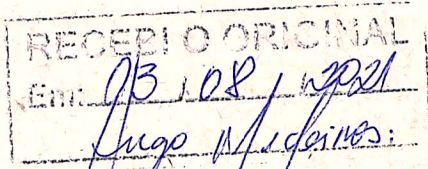 RECEBI O ORIGINAL
Em: 03 / 08 / 2021
Hugo Medeiros: